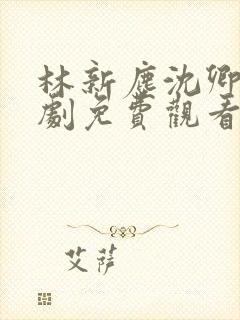 林新鹿沈卿
劇免費觀看
艾萨